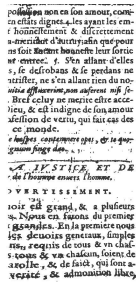 possession non en son amour, com-
en estãs dignes, & les ayant les em-
t honnestement & discrettement
afin que pour
ne soit honneste leur sortie
est entree. S'en allant d'elles
s, se desrobans & se perdans ne
atrister, ne s'en allant rien du no-
nitia affluxerint, non auferent nisi se-
Bref celuy ne merite estre acce-
dieu, & est indigne de son amour
ofession de vertu, qui fait cas des
ce monde.
hospes contemnere opes, & te quo-
gnum finge deo.
IVSTICE, ET DE
de l'homme enuers l'homme.
DVERTISSEMENT.
oir est grand, & a plusieurs
s. Nous en ferons du premier
grandes. En la premiere nous
les deuoirs generaux, simples
ns, requis de tous & vn chas-
tous & vn chascun, soient de
parolle, & de faict, qui sont a-
verité, & admonition libre,